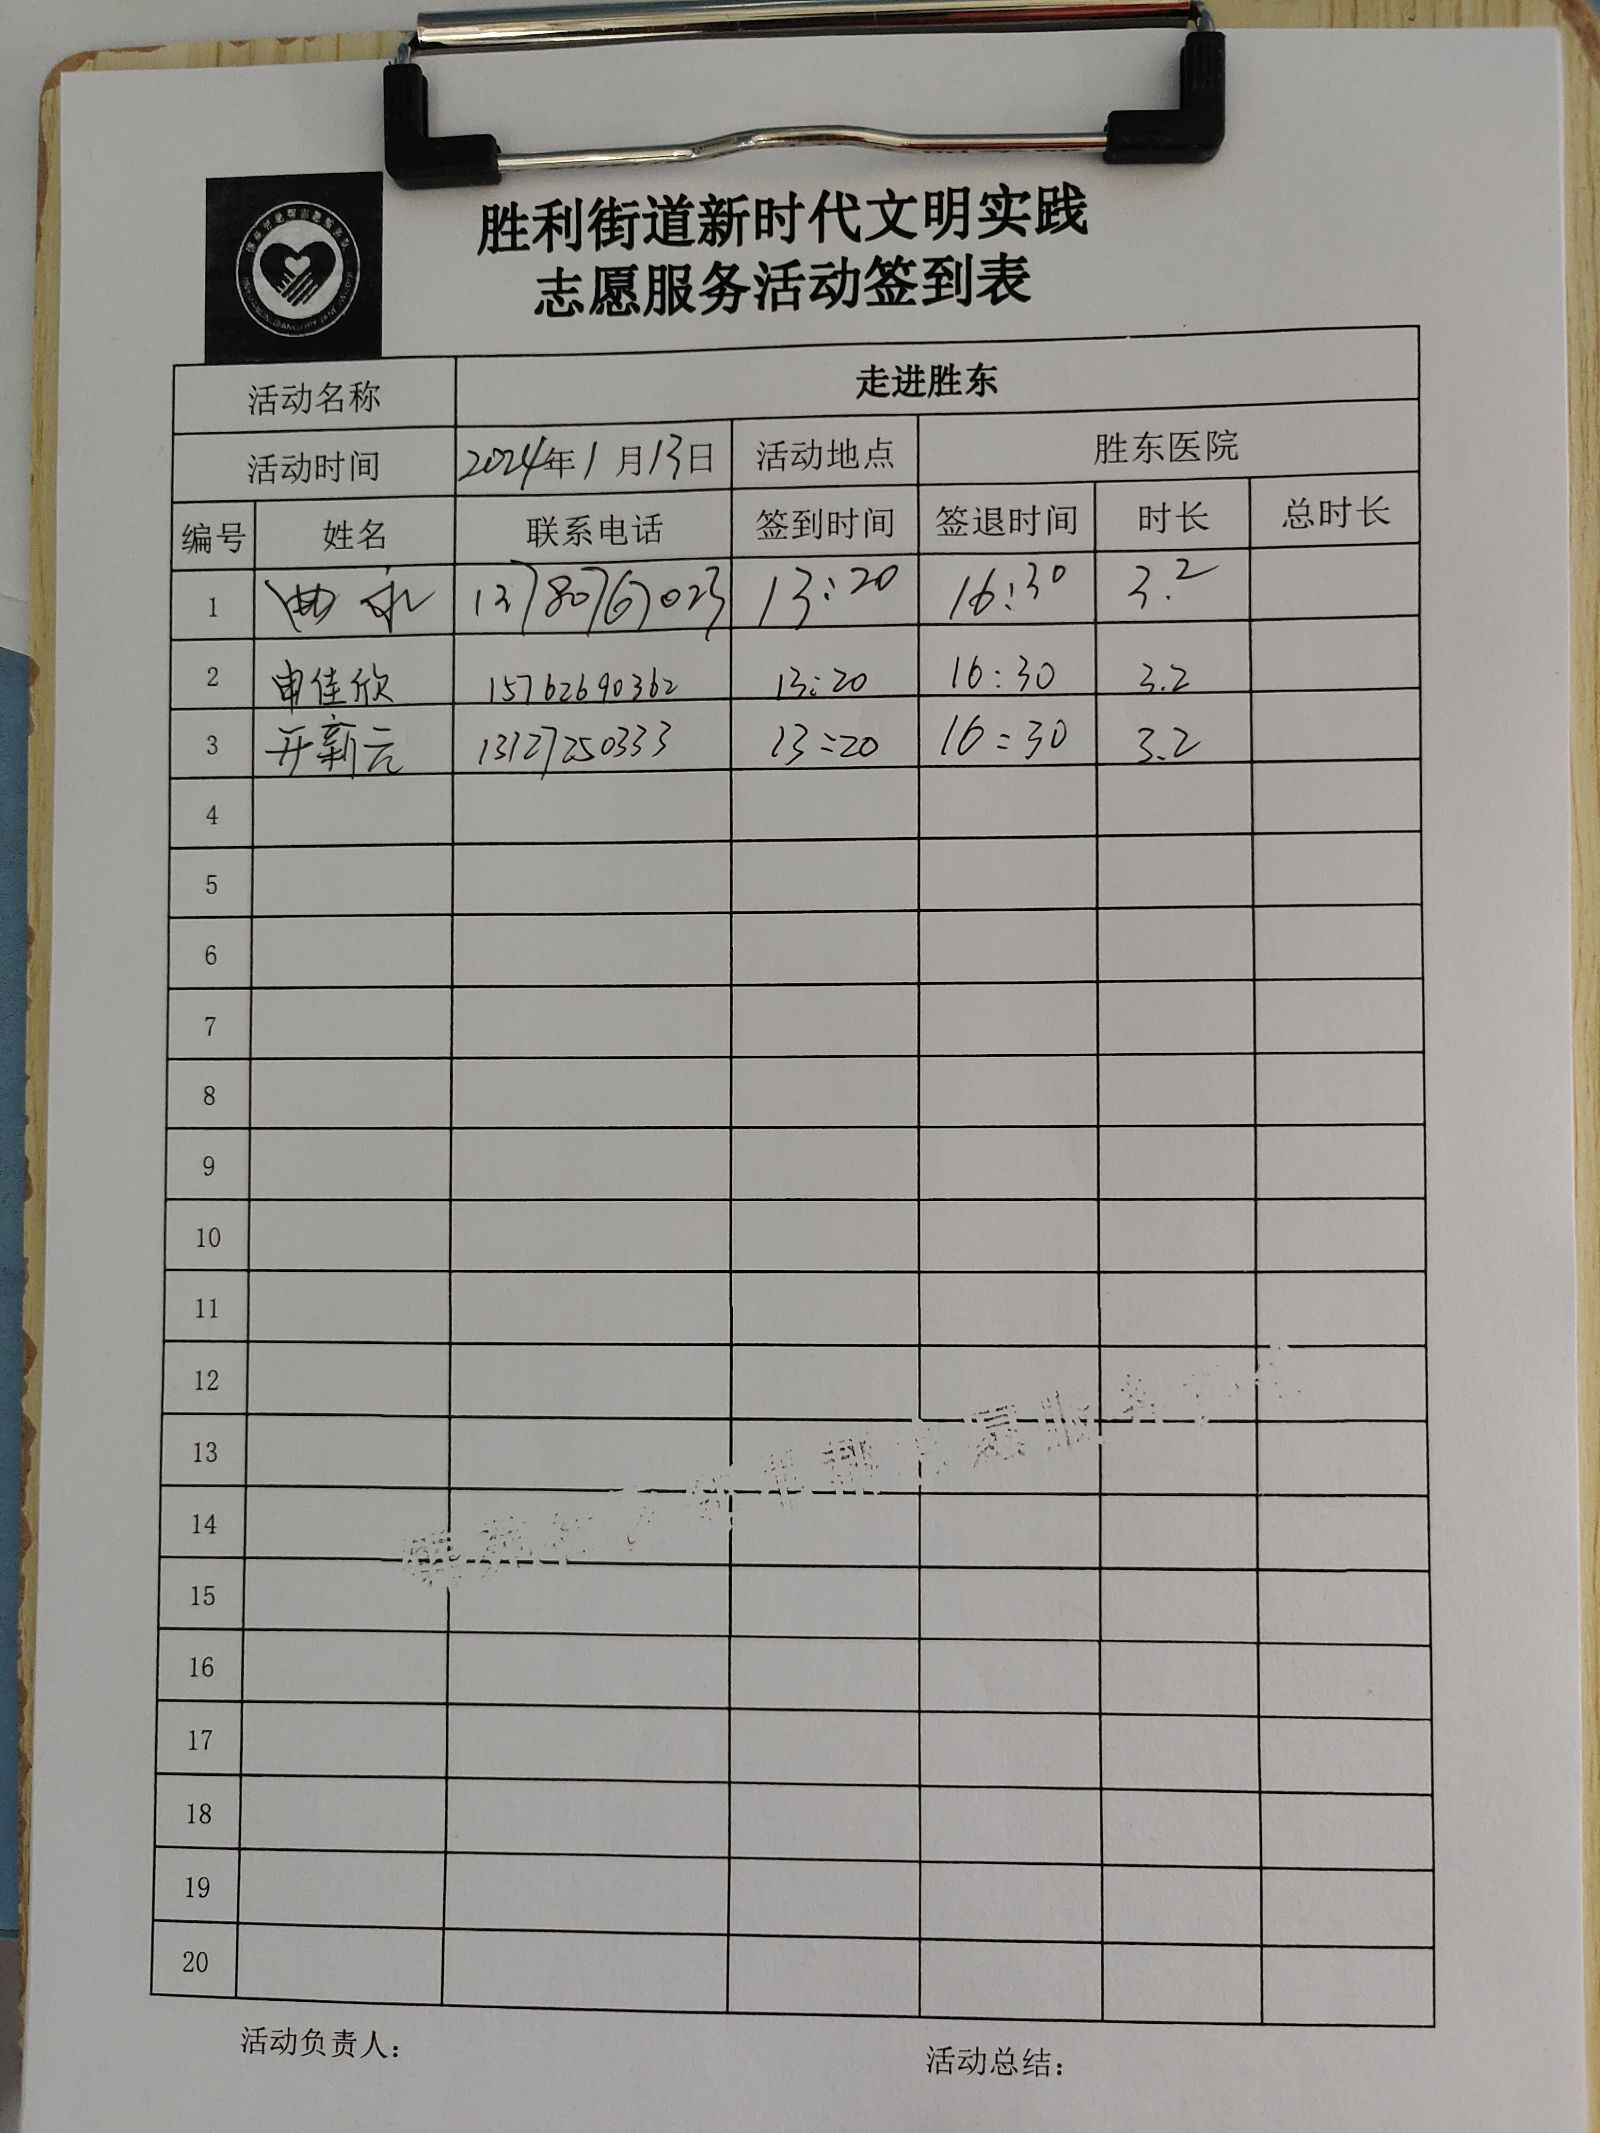 胜利街道新时代文明实践
志愿服务活动签到表
活动名称 走进胜东
活动时间 2024年1月13日 活动地点 胜东医院
编号 姓名 联系电话 签到时间 签退时间 时长 总时长
1 曲永 13780767023 13:20 16:30 3.2
2 申佳欣 15762690362 13:20 16:30 3.2
3 开新元 13127250333 13:20 16:30 3.2
4
5
6
7
8
9
10
11
12
13
14
15
16
17
18
19
20
活动负责人： 活动总结：